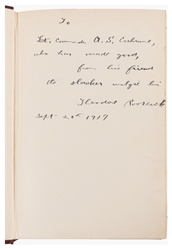 To
Lt. Commander A. S. Cochrane,
who has made good,
from his friend
the
Theodore Roosevelt
Sept 2 1917